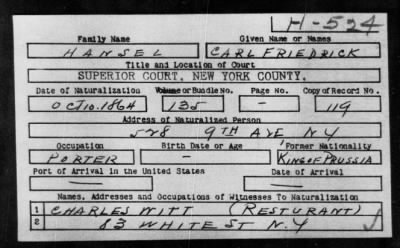 H-524
Family Name Given Name or Names
HANSEL CARL FRIEDRICK
Title and Location of Court
SUPERIOR COURT, NEW YORK COUNTY.
Date of Naturalization Volume or Bundle No. Page No. Copy of Record No.
OCT 10. 1864 135 - 119
Address of Naturalized Person
528 9TH AVE N.Y
Occupation Birth Date or Age Former Nationality
PORTER - KING OF PRUSSIA
Port of Arrival in the United States Date of Arrival
- -
Names, Addresses and Occupations of Witnesses To Naturalization
1 CHARLES WITT (RESTURANT)
2 83 WHITE ST N.Y